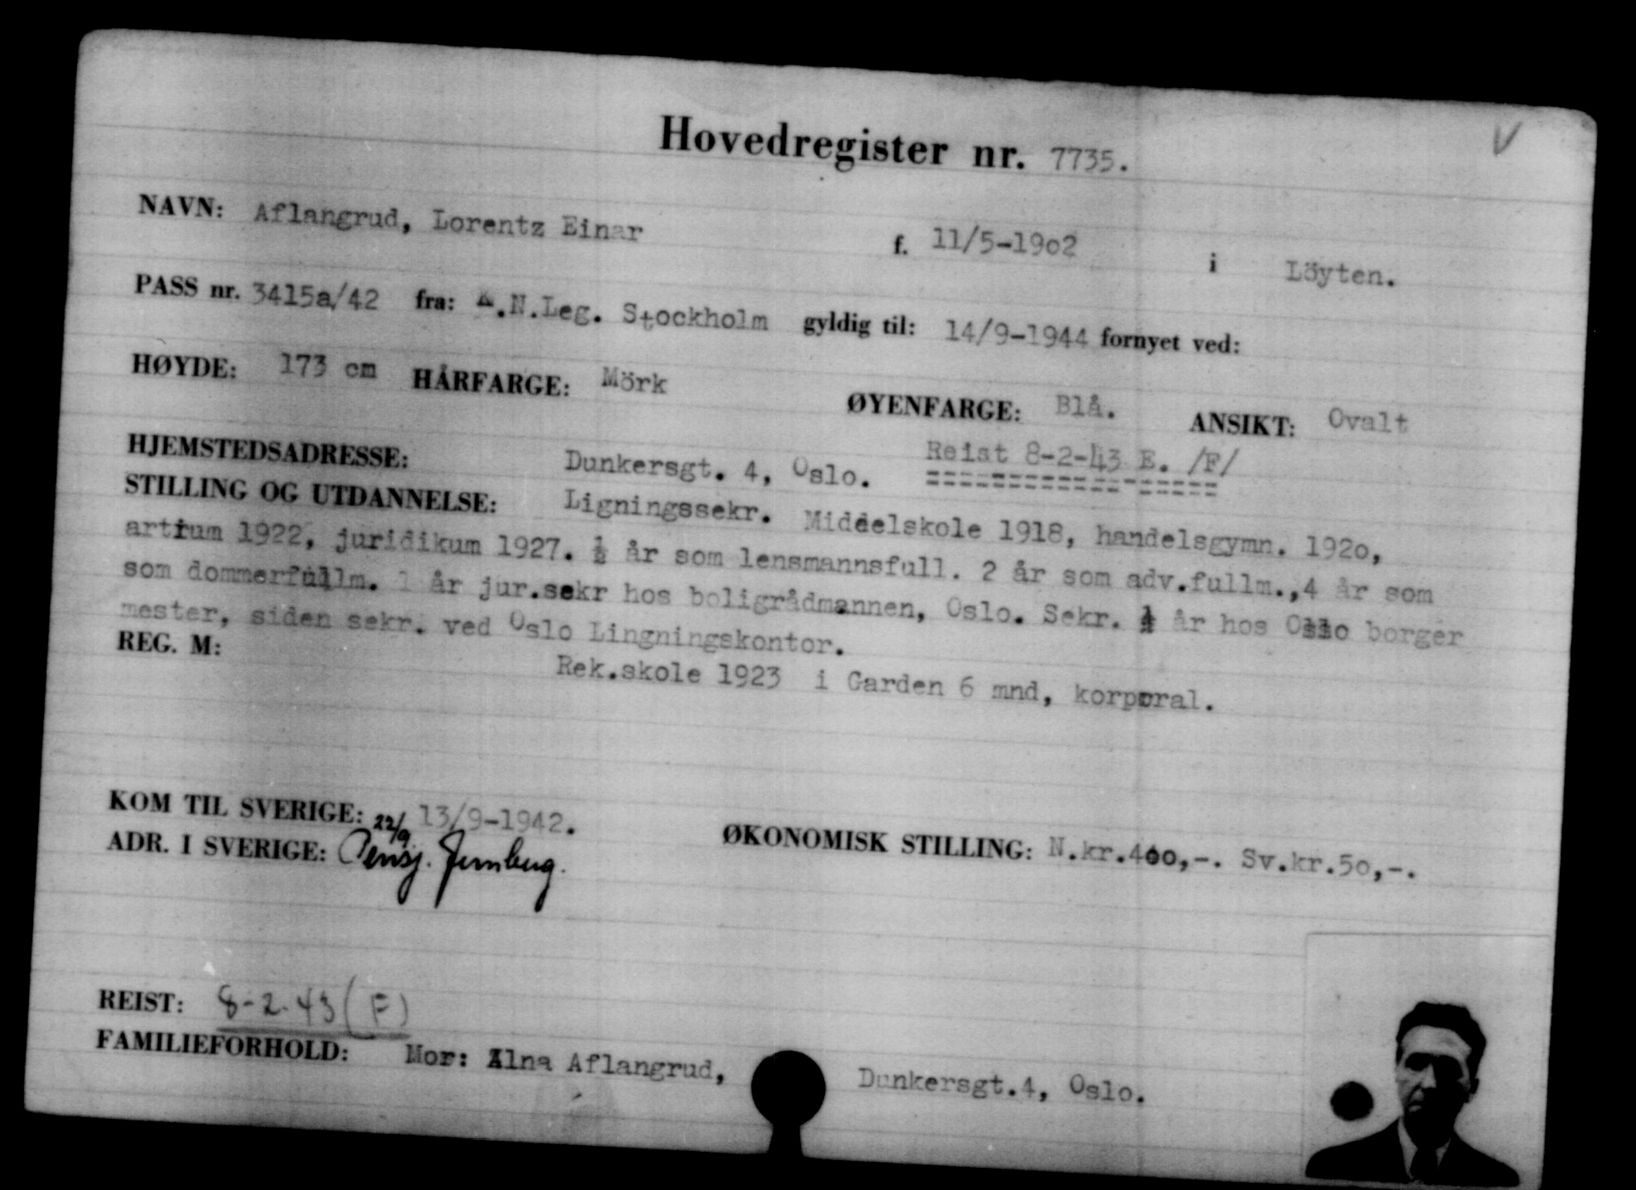 Hovedregister nr. 7735.
NAVN: Aflangrud, Lorentz Einar f. 11/5-19o2 i Löyten.
PASS nr. 3415a/42 fra: K.N.Leg. Stockholm gyldig til: 14/9-1944 fornyet ved:
HØYDE: 173 cm HÅRFARGE: Mörk ØYENFARGE: Blå. ANSIKT: Ovalt
Reist 8-2-43 E. /F/
HJEMSTEDSADRESSE: Dunkersgt. 4, Oslo.
STILLING OG UTDANNELSE: Ligningssekr. Middelskole 1918, handelsgymn. 192o,
artium 1922, juridikum 1927. ½ år som lensmannsfull. 2 år som adv.fullm.,4 år som
som dommerfullm. 1 år jur.sekr hos boligrådmannen, Oslo. Sekr. ½ år hos Oslo borger
mester, siden sekr. ved Oslo Lingningskontor.
REG. M: Rek.skole 1923 i Garden 6 mnd, korporal.
KOM TIL SVERIGE: 13/9-1942.
22/9
ADR. I SVERIGE: Pensj. ØKONOMISK STILLING: N.kr.400,-. Sv.kr.5o,-.
REIST: 8-2-43 (F)
FAMILIEFORHOLD: Mor: Alna Aflangrud, Dunkersgt.4, Oslo.